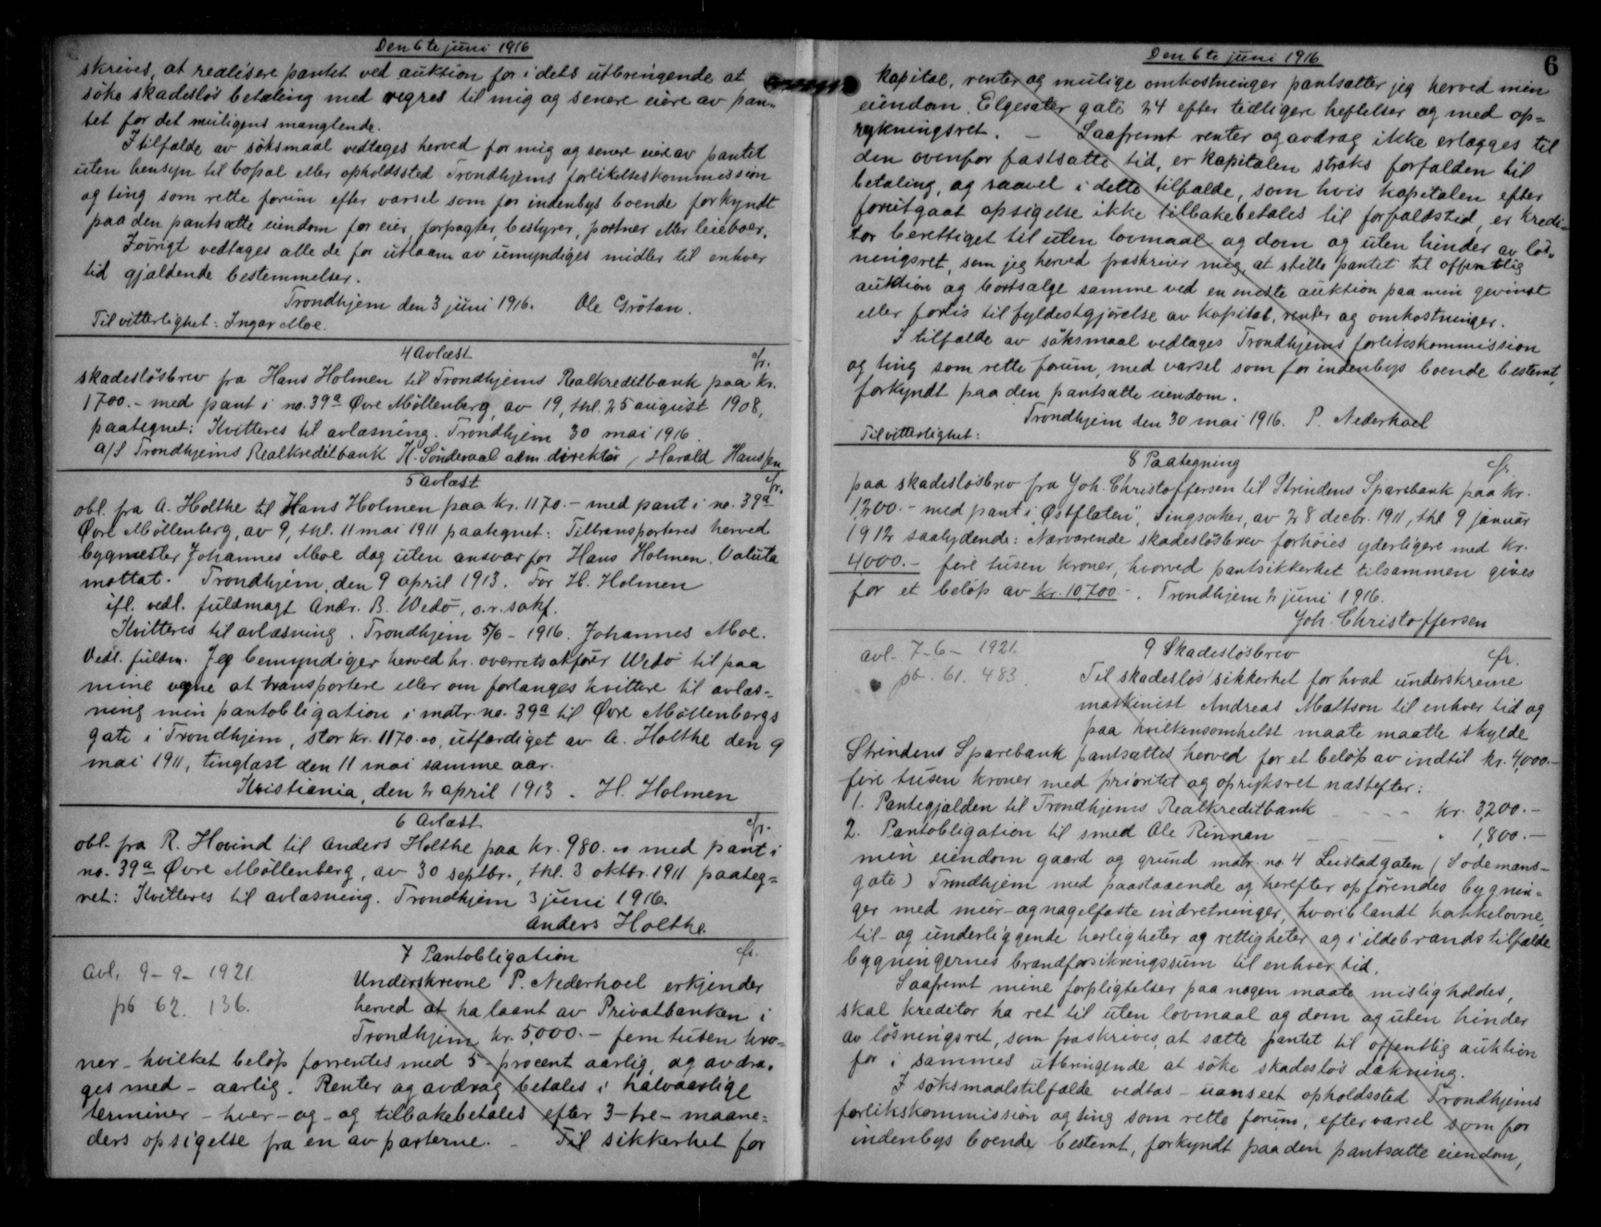 Den 6te juni 1916
skrives, at realisere pantet ved auktion for i dets utbringende at
söke skadeslös betaling med regres til mig og senere eiere av pan-
tet for det muligens manglende.
I tilfælde av söksmaal vedtages herved for mig og senere eier av pantet
uten hensyn til bopæl eller opholdssted Trondhjems forlikelseskommission
og ting som rette forum efter varsel som for indenbys boende forkyndt
paa den pantsatte eiendom for eier, forpagter, bestyrer, portner eller leieboer.
Iövrigt vedtages alle de for utlaan av umyndiges midler til enhver
tid gjældende bestemmelser.
Trondhjem den 3 juni 1916. Ole Grötan.
Til vitterlighet: Ingar Moe.
4 Avlæst
fr.
skadeslösbrev fra Hans Holmen til Trondhjems Realkreditbank paa kr.
1700.- med pant i no. 39a Övre Möllenberg, av 19, thl. 25 august 1908,
paategnet: Kvitteres til avlæsning. Trondhjem 30 mai 1916.
A/S Trondhjems Realkreditbank K. Sönderaal adm. direktör / Harald Hanssen
5 Avlæst
fr.
obl. fra A. Holthe til Hans Holmen paa kr. 1170.- med pant i no. 39a
Övre Möllenberg, av 9, thl. 11 mai 1911 paategnet: Tiltransporteres herved
bygmester Johannes Moe dog uten ansvar for Hans Holmen. Valuta
mottat. Trondhjem, den 9 april 1913. For H. Holmen
ifl. vedl. fuldmagt Andr. B. Wedö, o.r.sakf.
Kvitteres til avlæsning. Trondhjem 5/6 - 1916. Johannes Moe.
Vedl. fuldm. Jeg bemyndiger herved hr. overretssakförer Wedö til paa
mine vegne at transportere eller om forlanges kvittere til avlæs-
ning min pantobligation i matr. no. 39a til Övre Möllenbergs
gate i Trondhjem, stor kr. 1170.00, utfærdiget av A. Holthe den 9
mai 1911, tinglæst den 11 mai samme aar.
Kristiania, den 2 april 1913. H. Holmen
6 Avlæst
fr.
obl. fra R. Hovind til Anders Holthe paa kr. 980.00 med pant i
no. 39a Övre Möllenberg, av 30 septbr., thl. 3 oktbr. 1911 paateg-
net: Kvitteres til avlæsning. Trondhjem 3 juni 1916.
Anders Holthe.
7 Pantobligation
fr.
avl. 9-9-1921.
pb 62. 136.
Underskrevne P. Nederhoel erkjender
herved at ha laant av Privatbanken i
Trondhjem kr. 5000.- fem tusen kro-
ner - hvilket belöp forrentes med 5 - procent aarlig, og avdra-
ges med - aarlig. Renter og avdrag betales i halvaarlige
terminer - hver - og - og tilbakebetales efter 3-tre- maane-
ders opsigelse fra en av parterne. - Til sikkerhet for
Den 6te juni 1916
6
kapital, renter og mulige omkostninger pantsætter jeg herved min
eiendom Elgesæter gate 24 efter tidligere heftelser og med op-
rykningsret. - Saafremt renter og avdrag ikke erlægges til
den ovenfor fastsatte tid, er kapitalen straks forfalden til
betaling, og saavel i dette tilfælde, som hvis kapitalen efter
forutgaat opsigelse ikke tilbakebetales til forfaldstid, er kredi-
tor berettiget til uten lovmaal og dom og uten hinder av lös-
ningsret, som jeg herved fraskriver mig, at stille pantet til offentlig
auktion og bortsælge samme ved en eneste auktion paa min gevinst
eller forlis til fyldestgjörelse av kapital, renter og omkostninger.
I tilfælde av söksmaal vedtages Trondhjems forlikskommission
og ting som rette forum, med varsel som for indenbys boende bestemt,
forkyndt paa den pantsatte eiendom.
Trondhjem den 30 mai 1916. P. Nederhoel
Til vitterlighet:
8 Paategning
fr.
paa skadeslösbrev fra Joh. Christoffersen til Strindens Sparebank paa kr.
1200.- med pant i "Östflaten", Singsaker, av 28 decbr. 1911, thl 9 januar
1912 saalydende: Nærværende skadeslösbrev forhöies yderligere med kr.
4000.- fire tusen kroner, hvorved pantsikkerhet tilsammen gives
for et belöp av kr. 10,700.-. Trondhjem 2 juni 1916.
Joh. Christoffersen
9 Skadeslösbrev
fr.
avl. 7-6-1921.
pb. 61. 483.
Til skadeslös sikkerhet for hvad underskrevne
maskinist Andreas Mattson til enhver tid og
paa hvilkensomhelst maate maatte skylde
Strindens Sparebank pantsættes herved for et belöp av indtil kr. 4,000.-
fire tusen kroner med prioritet og opryksret næstefter:
1. Pantegjælden til Trondhjems Realkreditbank - - - - kr. 3,200.-
2. Pantobligation til smed Ole Rinnan - - - " 1,800.-
min eiendom gaard og grund matr. no. 4 Leistadgaten (Sodemans-
gate) Trondhjem med paastaaende og herefter opförendes bygnin-
ger med mur- og nagelfaste indretninger, hvoriblandt kakkelovne,
til- og underliggende herligheter og rettigheter og i ildebrandstilfælde
bygningernes brandforsikringssum til enhver tid.
Saafremt mine forpligtelser paa nogen maate misligholdes,
skal kreditor ha ret til uten lovmaal og dom og uten hinder
av lösningsret, som fraskrives, at sætte pantet til offentlig auktion
for i sammes utbringende at söke skadeslös dækning.
I söksmaalstilfælde vedtas - uanseet opholdssted Trondhjems
forlikskommission og ting som rette forum, efter varsel som for
indenbys boende bestemt, forkyndt paa den pantsatte eiendom,